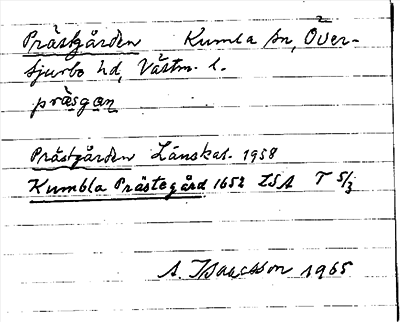 Prästgården Kumla sn, Över-
sjurbo hd, Västm. l.
präsgan
Prästgården Länskat. 1958
Kumbla Prästegård 1652 LSA T 5/3
A. Isaacsson 1965